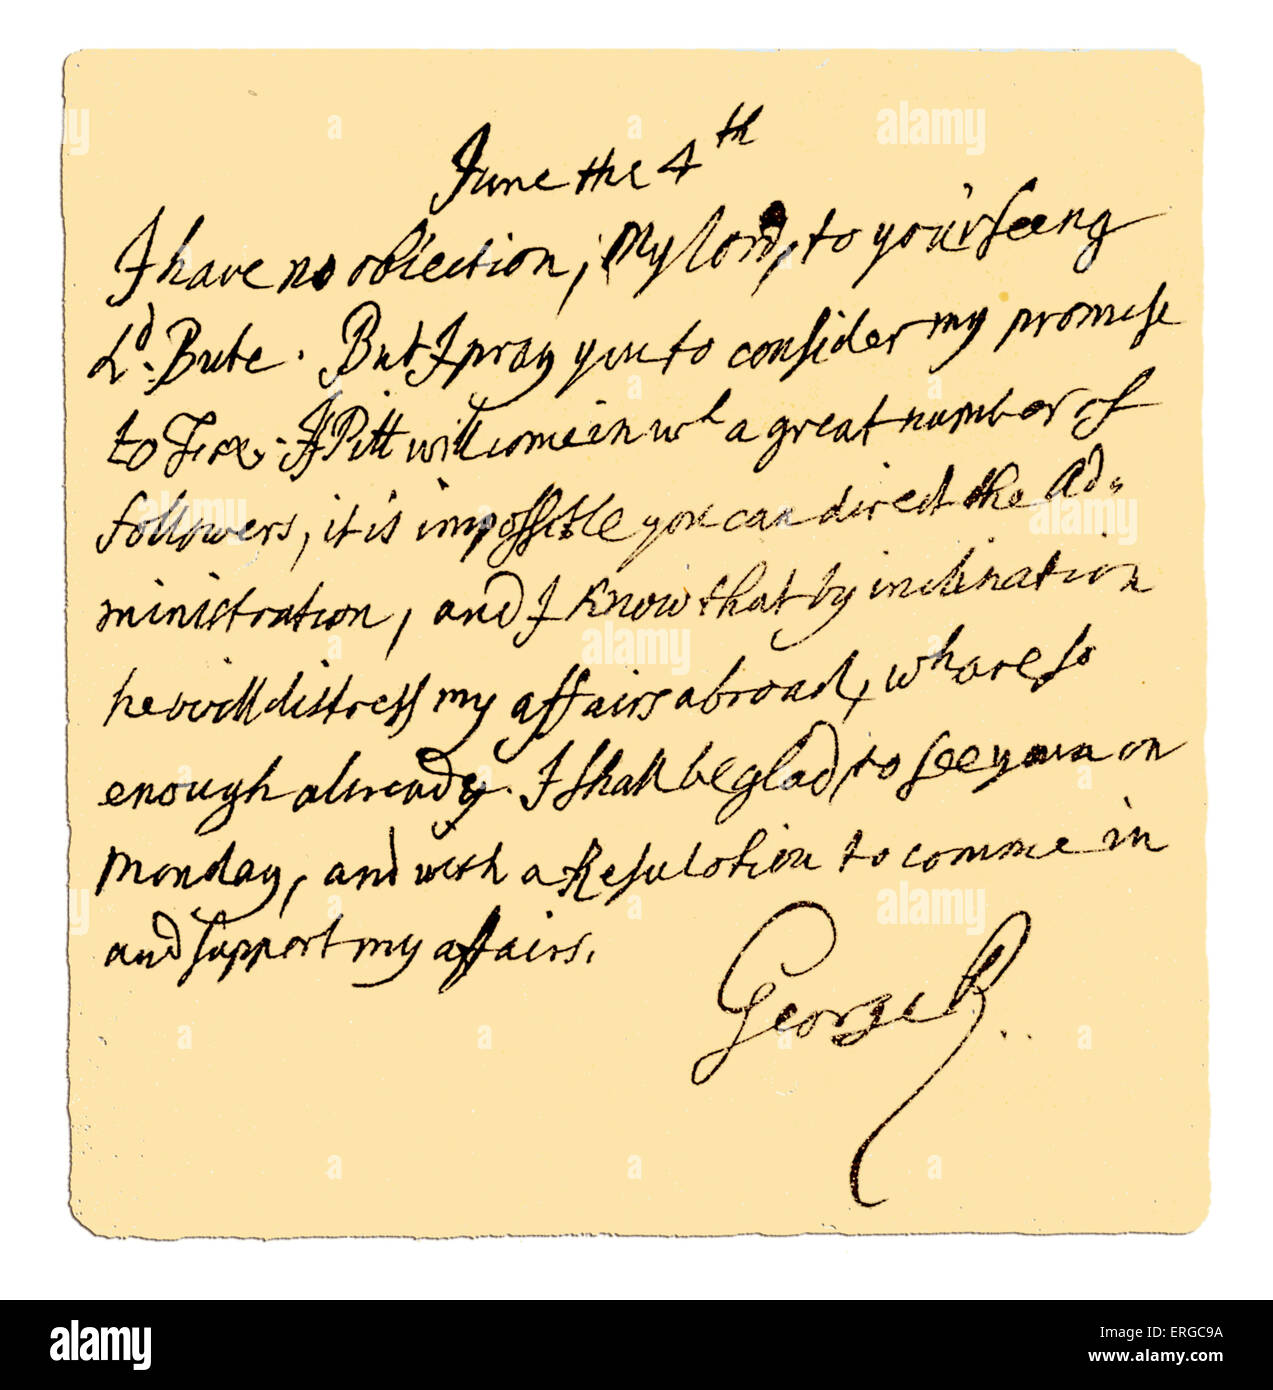 June the 4th
I have no obiection, My lord, to your seeing
Ld. Bute. But I pray you to consider my promise
to Fox. If Pitt will come in wh a great number of
followers, it is impossible you can direct the Ad„
ministration, and I know that by inclination
he will distress my affairs abroad, wh are so
enough already. I shall be glad, to see you on
Monday, and with a Resulotion to comme in
and support my affairs.
George R.
alamy
Image ID: ERGC9A
www.alamy.com